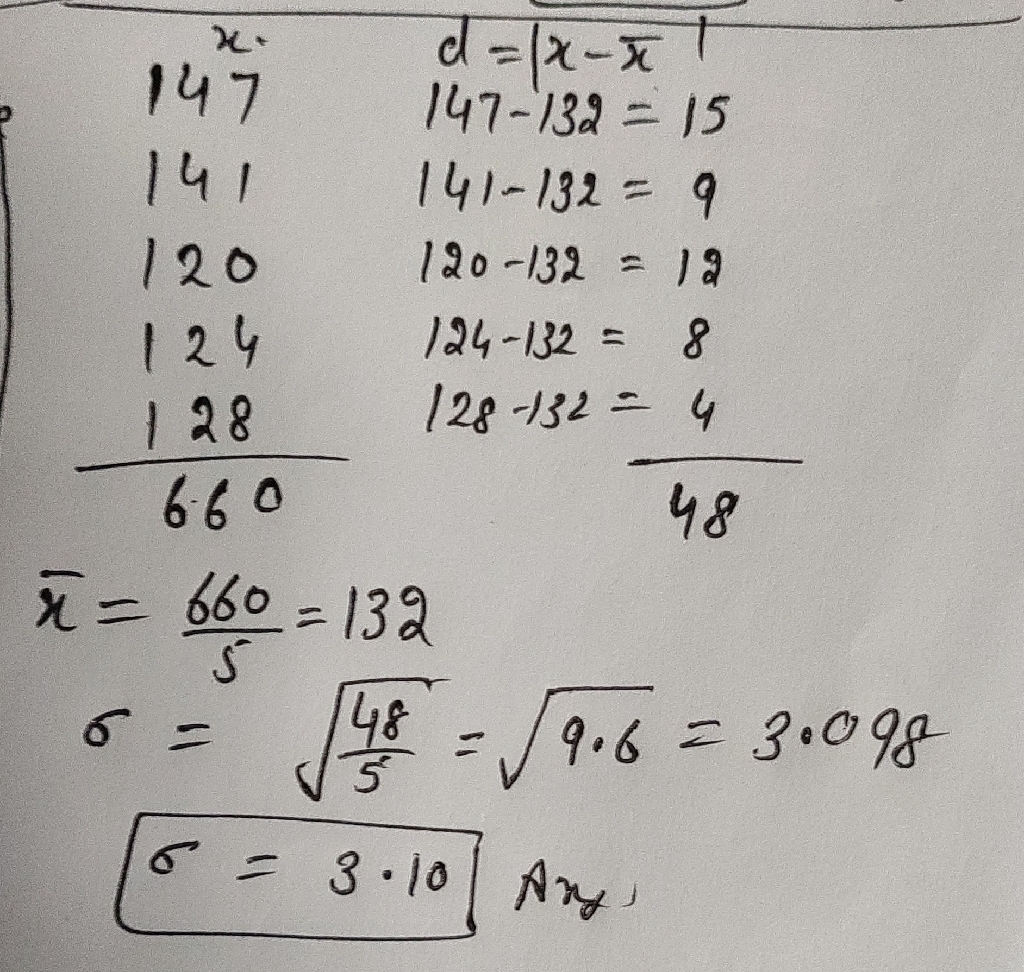 x. d = |x - x̄|
147 147-132 = 15
141 141-132 = 9
120 120-132 = 12
124 124-132 = 8
128 128-132 = 4
660 48
x̄ = 660/5 = 132
σ = √48/5 = √9.6 = 3.098
σ = 3.10 Ans,